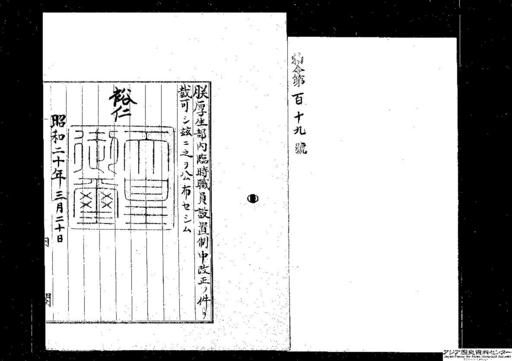 勅令第百十九號
朕厚生部內臨時職員設置制中改正ノ件ヲ
裁可シ茲ニ之ヲ公布セシム
裕仁
天皇御璽
昭和二十年三月二十日
內閣
アジア歴史資料センター